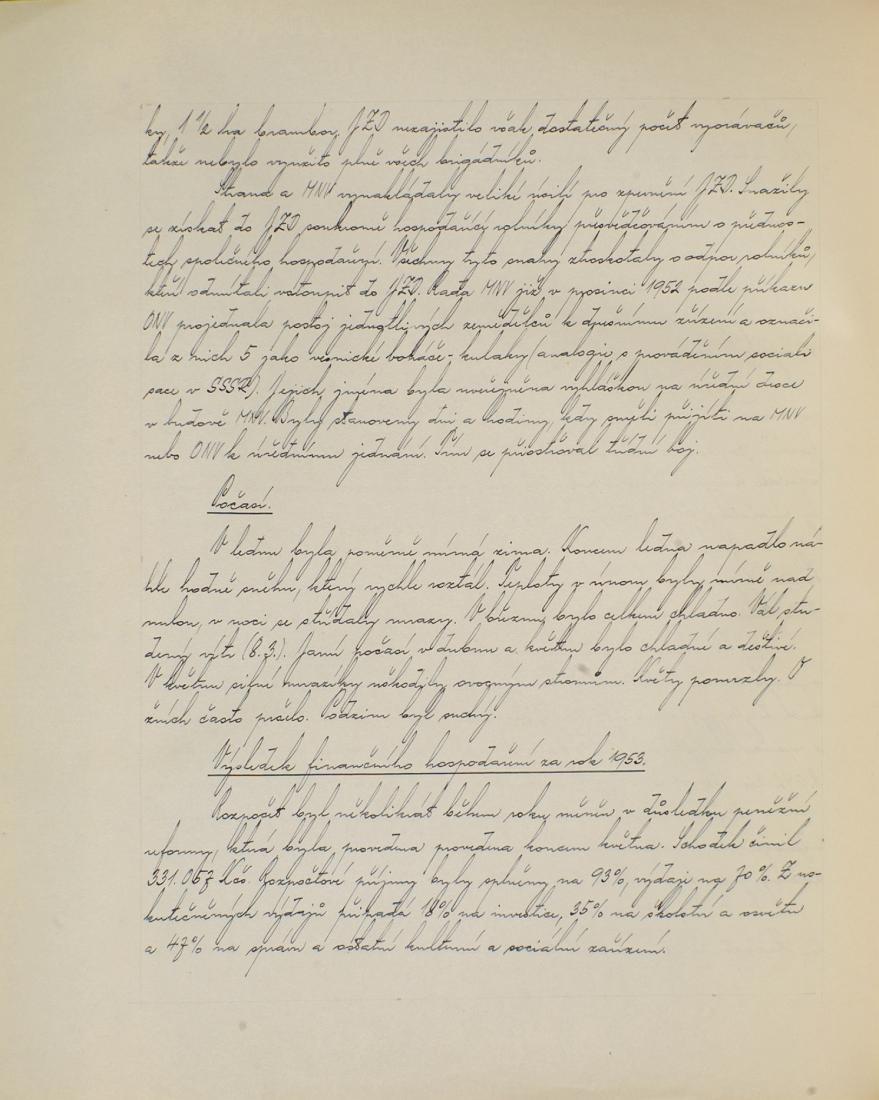 ky, 1 1/2 ha brambor. JZD nezajistilo však dostatečný počet vyorávačů,
takže nebylo využito plně všech brigádníků.
Strana a MNV vynakládaly veliké úsilí pro zpevnění JZD. Snažily
se získat do JZD soukromě hospodařící rolníky přesvědčováním o přednos-
tech společného hospodaření. Všechny tyto snahy ztroskotaly o odpor rolníků,
kteří odmítali vstoupit do JZD. Rada MNV již v prosinci 1952 podle příkazu
ONV projednala postoj jednotlivých zemědělců k dnešnímu zřízení a označi-
la z nich 5 jako vesnické boháče - kulaky (analogie s prováděním sociali
sace v SSSR). Jejich jména byla uveřejněna vyhláškou na úřední desce
v budově MNV. Byly stanoveny dni a hodiny, kdy směli přijíti na MNV
nebo ONV k úřednímu jednání. Tím se přiostřoval třídní boj.
Počasí.
V lednu byla poměrně mírná zima. Koncem ledna napadlo ná-
hle hodně sněhu, který rychle roztál. Teploty v únoru byly mírně nad
nulou, v noci se střídaly mrazy. V březnu bylo celkem chladno. Vál stu-
dený vítr (8.3.). Jarní počasí v dubnu a květnu bylo chladné a deštivé.
V květnu silné mrazíky uškodily ovocným stromům. Květy pomrzly. O
žních často pršelo. Podzim byl suchý.
Výsledek finančního hospodaření za rok 1953.
Rozpočet byl několikrát během roku měněn v důsledku peněžní
reformy, která byla provedena provedena koncem května. Schodek činil
331.057 Kčs. Rozpočtové příjmy byly splněny na 93%, výdaje na 70%. Z us-
kutečněných výdajů připadá 18% na investice, 35% na školství a osvětu
a 47% na správu a ostatní kulturní a sociální zařízení.